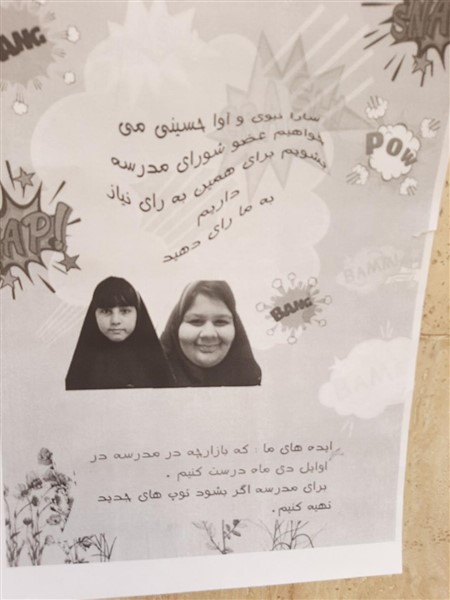 BANG
SNA
POW
AP!
سارا نبوی و آوا حسینی می
خواهیم عضو شورای مدرسه
بشویم برای همین به رای نیاز
داریم
به ما رای دهید
BANG
BAMM
BAM
ایده های ما : که بازارچه در مدرسه در
اوایل دی ماه درست کنیم .
برای مدرسه اگر بشود توپ های جدید
تهیه کنیم.